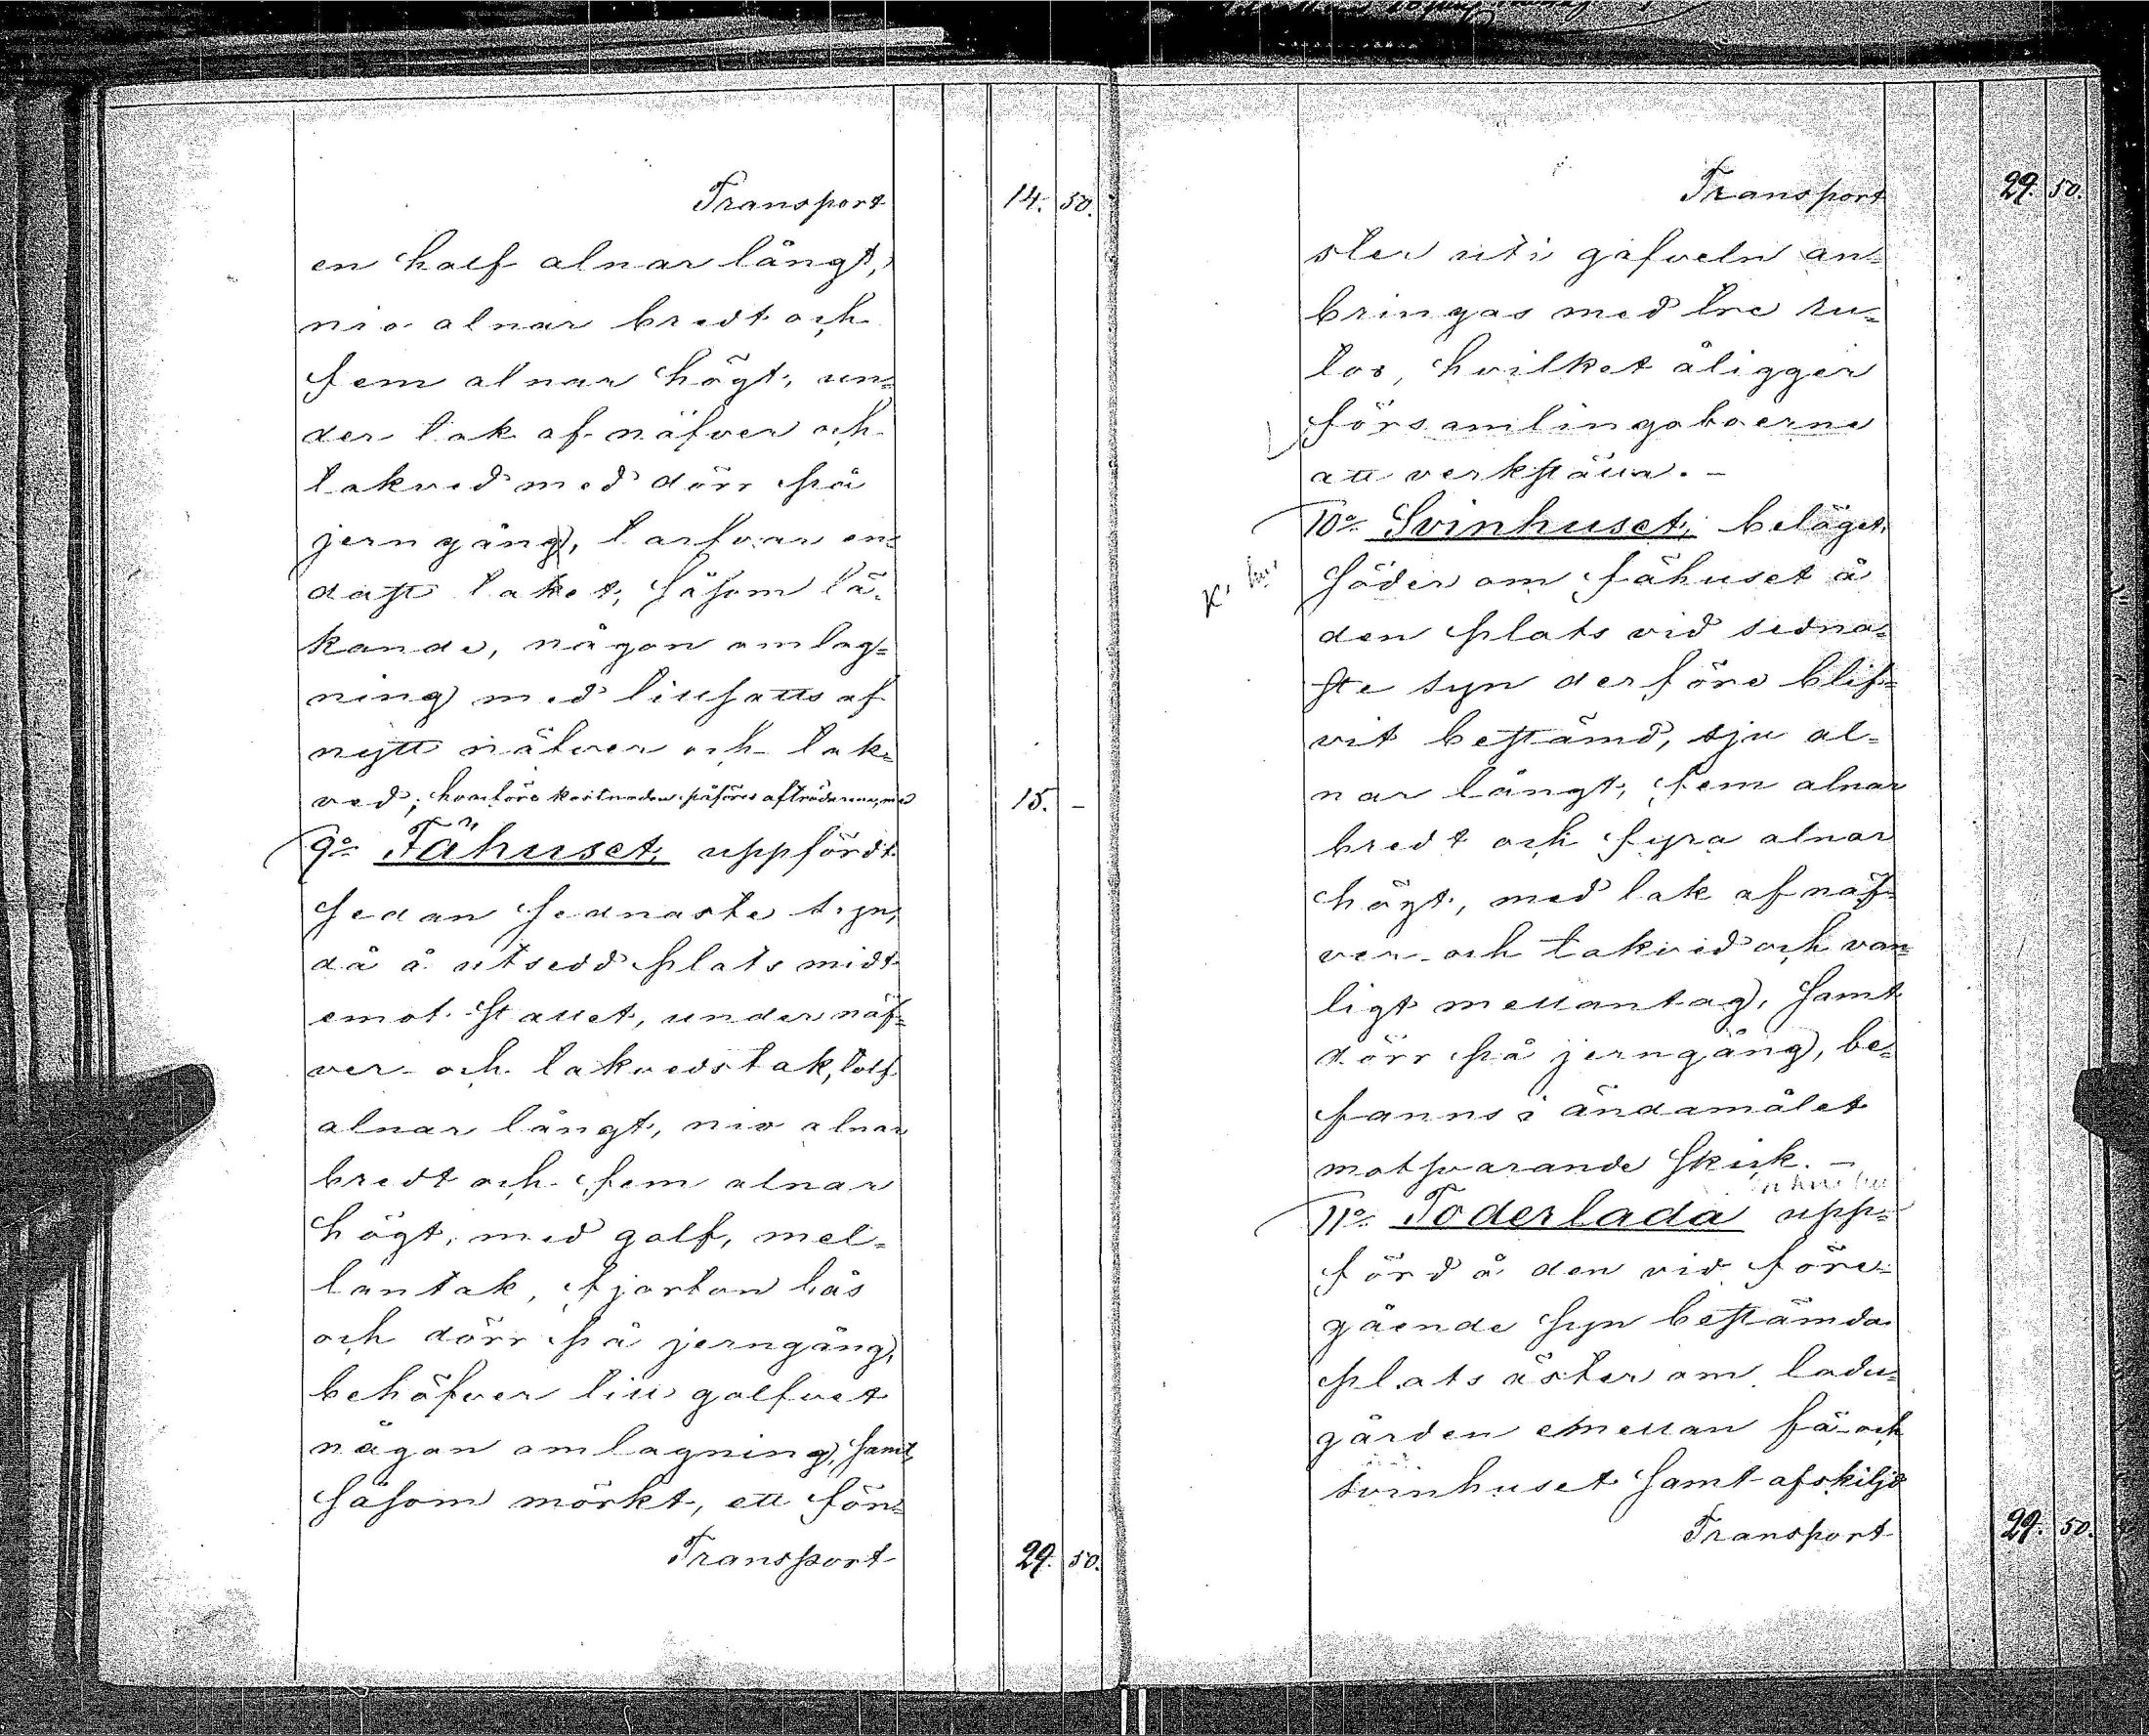 Transport 14. 50.
en half alnar långt,
nio alnar bredt och
fem alnar högt, un=
der tak af näfver och
takved med dörr på
jerngång, tarfvar en=
dast taket, såsom lä=
kande, någon omlag=
ning med tillsatts af
nytt näfver och tak=
ved; hvarföre kostnaden påföres afträdarena, med 15. -
9o Fähuset, uppfördt
sedan sednaste syn,
då å utsedd plats midt
emot stallet, under näf=
ver- och takvedstak, tolf
alnar långt, nio alnar
bredt och fem alnar
högt, med golf, mel=
lantak, fjorton bås
och dörr på jerngång,
behöfver till golfvet
någon omlagning, samt,
såsom mörkt, ett fön=
Transport 29. 50.
Transport 29. 50.
ster uti gafveln an=
bringas med tre ru=
tor, hvilket åligger
församlingsboerne
att verkställa. -
10o Svinhuset, beläget
söder om fähuset å
den plats vid sedna=
ste syn derföre blif=
vit bestämd, sju al=
nar långt, fem alnar
bredt och fyra alnar
högt, med tak af näf=
ver och takved och van=
ligt mellantag, samt
dörr på jerngång, be=
fanns i ändamålet
motsvarande skick. -
11o Foderlada upp=
förd å den vid före=
gående syn bestämda
plats öster om ladu=
gården emellan fä- och
svinhuset samt afskiljd
Transport 29. 50.